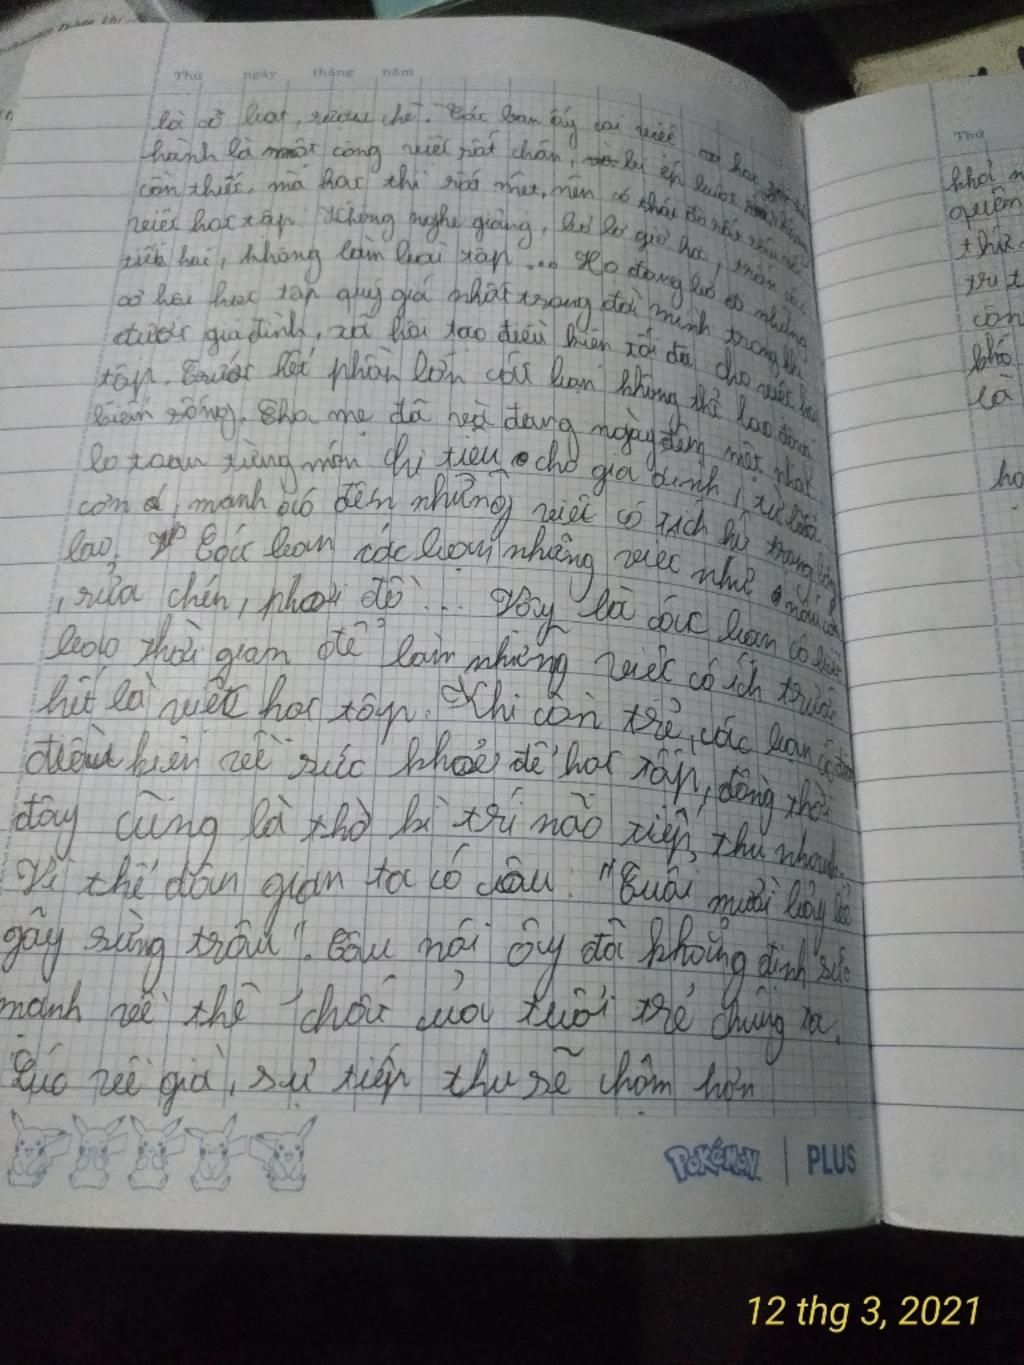 Thứ ngày tháng năm
là cờ bạc, rượu chè. Các bạn ấy coi việc học
hành là một công việc rất chán, bị ép buộc
cần thiết, mà học thì rất mệt, nên có thái độ rất
việc học tập. Không nghe giảng, bỏ lơ giờ học, trốn
tiết học, không làm bài tập... Họ đang bỏ đi những
cơ hội học tập quý giá nhất trong đời mình trong khi
được gia đình, xã hội tạo điều kiện tối đa cho việc học
tập. Trước hết phần lớn các bạn không thể lao động
kiếm sống. Cha mẹ đã và đang ngày đêm mệt nhọc
lo toan từng món chi tiêu cho gia đình, từ bữa
cơm, manh áo đến những việc có ích
lao. Các bạn các bạn những việc như nấu cơm
, rửa chén, phơi đồ ... Vậy là các bạn có biết
bao thời gian để làm những việc có ích trước
hết là việc học tập. Khi còn trẻ, các bạn có
điều kiện về sức khoẻ để học tập, đồng thời
đây cũng là thời kì trí não tiếp thu nhanh.
Vì thế dân gian ta có câu: "Tuổi mười bảy bẻ
gãy sừng trâu". Câu nói ấy đã khẳng định sức
mạnh về thể chất của tuổi trẻ chúng ta.
Lúc về già, sự tiếp thu sẽ chậm hơn
POKÉMON | PLUS
Thứ
quên
còn
khó
là
12 thg 3, 2021